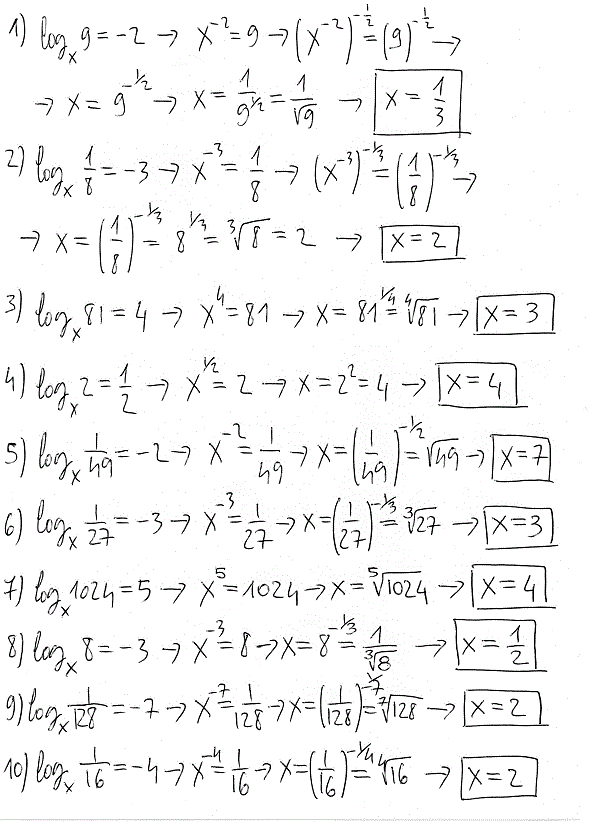 1) log_x 9 = -2 → x^-2 = 9 → (x^-2)^-1/2 = (9)^-1/2 →
→ x = 9^-1/2 → x = 1/9^1/2 = 1/√9 → x = 1/3
2) log_x 1/8 = -3 → x^-3 = 1/8 → (x^-3)^-1/3 = (1/8)^-1/3 →
→ x = (1/8)^-1/3 = 8^1/3 = ∛8 = 2 → x = 2
3) log_x 81 = 4 → x^4 = 81 → x = 81^1/4 = ∜81 → x = 3
4) log_x 2 = 1/2 → x^1/2 = 2 → x = 2^2 = 4 → x = 4
5) log_x 1/49 = -2 → x^-2 = 1/49 → x = (1/49)^-1/2 = √49 → x = 7
6) log_x 1/27 = -3 → x^-3 = 1/27 → x = (1/27)^-1/3 = ∛27 → x = 3
7) log_x 1024 = 5 → x^5 = 1024 → x = ⁵√1024 → x = 4
8) log_x 8 = -3 → x^-3 = 8 → x = 8^-1/3 = 1/∛8 → x = 1/2
9) log_x 1/128 = -7 → x^-7 = 1/128 → x = (1/128)^-1/7 = ⁷√128 → x = 2
10) log_x 1/16 = -4 → x^-4 = 1/16 → x = (1/16)^-1/4 = ∜16 → x = 2